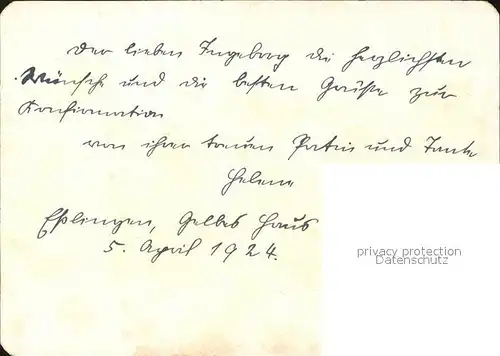 Der lieben Ingeborg die herzlichsten
Wünsche und die besten Grüße zur
Konfirmation
von ihrer treuen Patin und Tante
Helene
Eßlingen, Gelbes Haus
5. April 1924.
privacy protection
Datenschutz